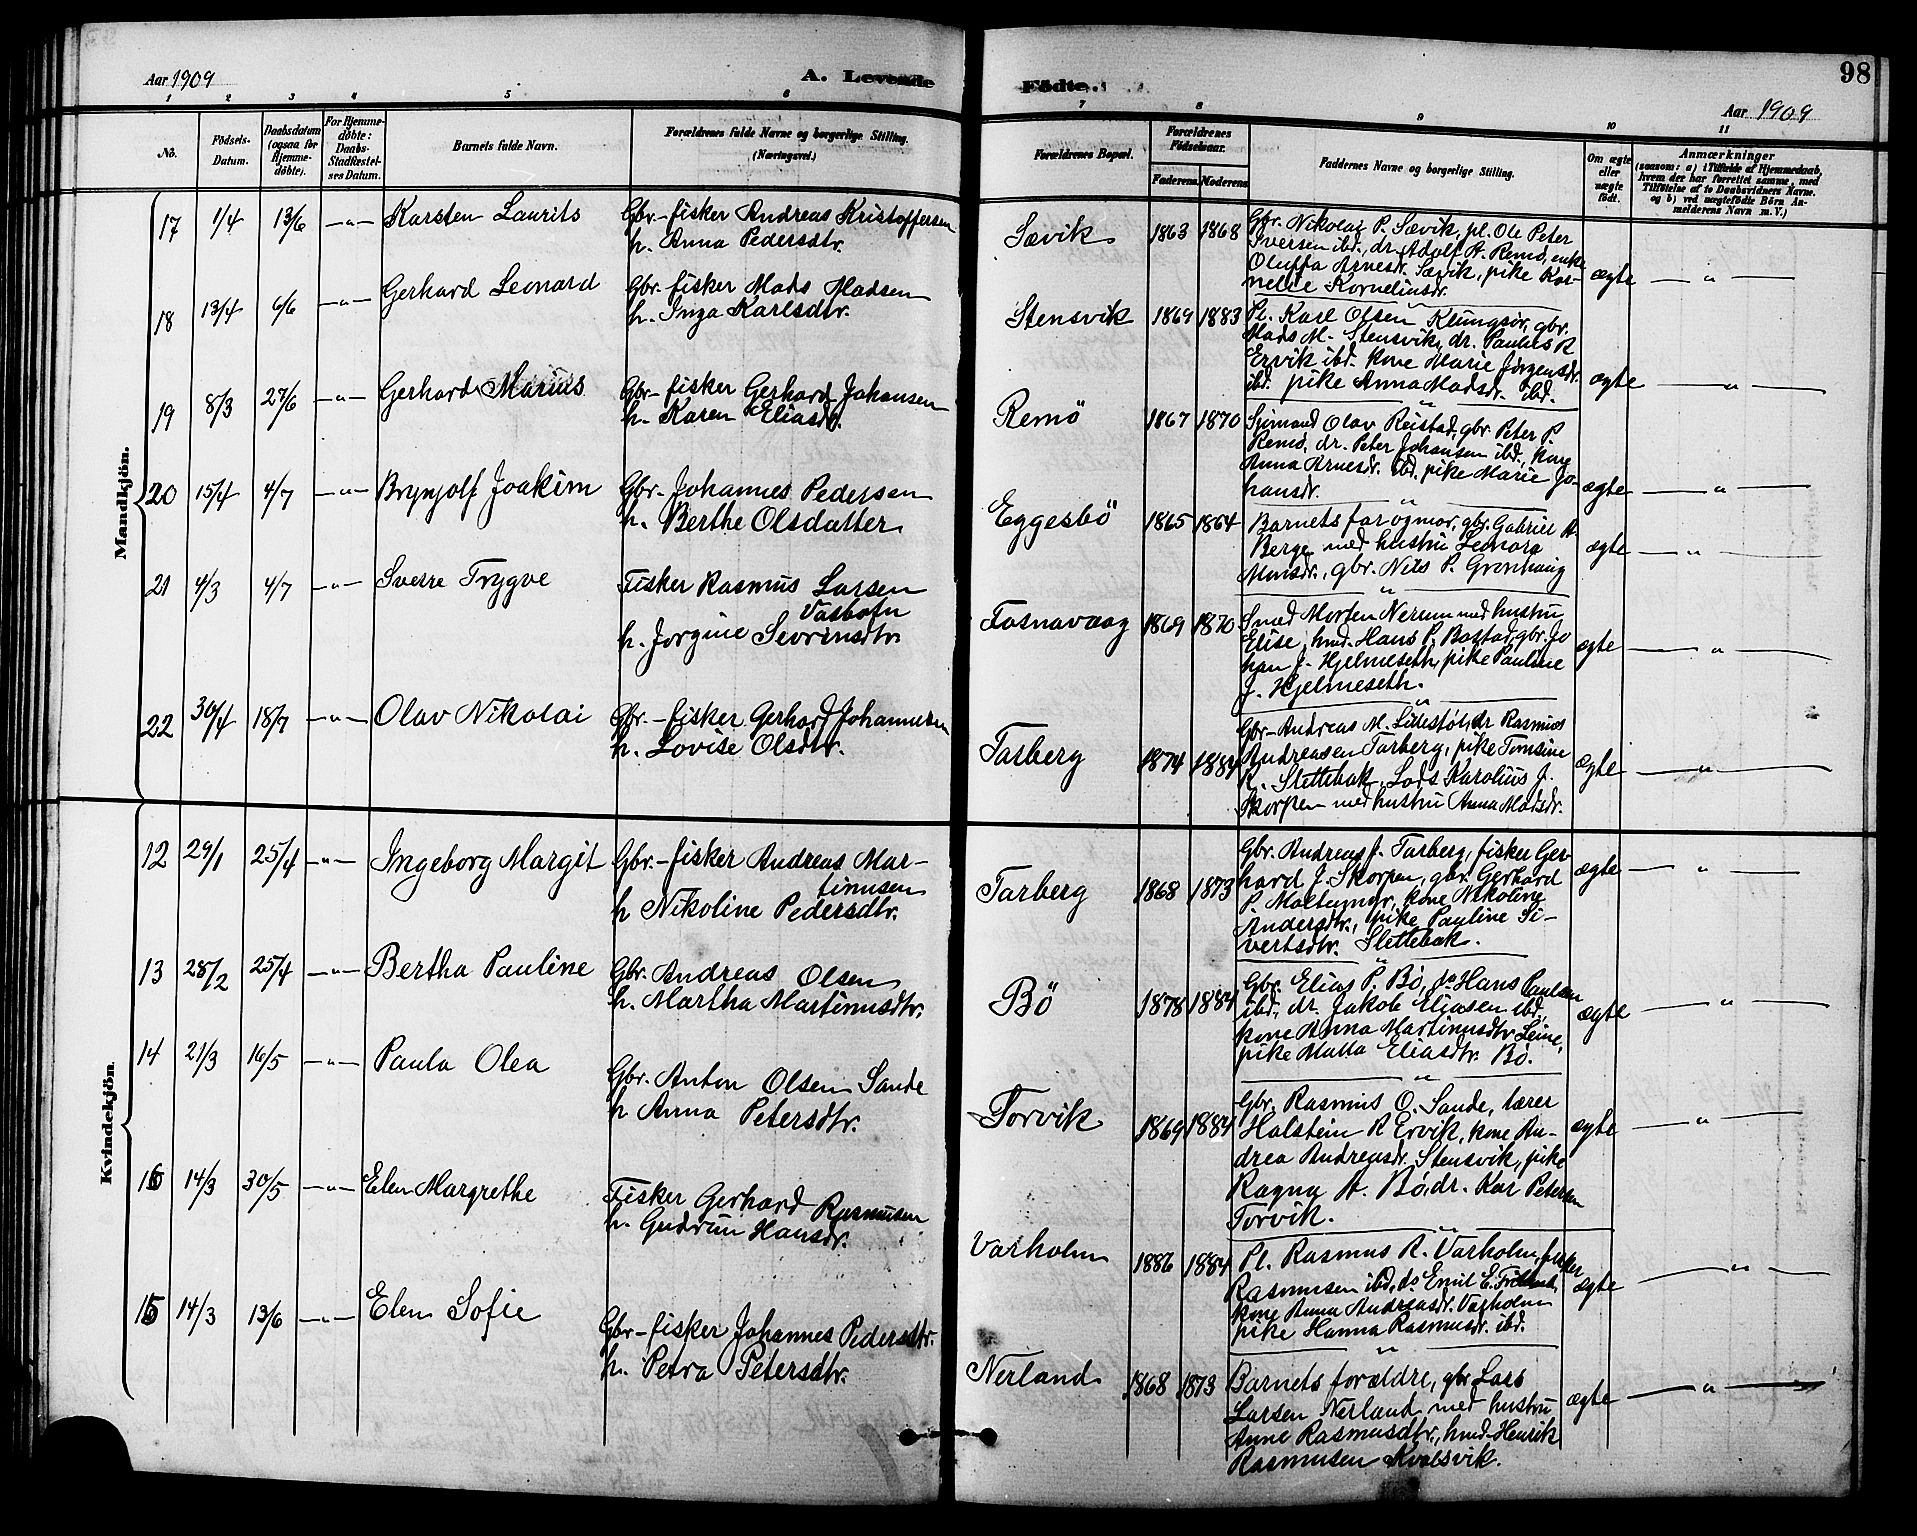 Aar 1909
A. Levende
Födte.
98
Aar 1909
1 2 3 4 5 6 7 8 9 10 11
No.
Födsels-
Datum.
Daabsdatum
(ogsaa for
Hjemme-
döbte).
For Hjemme-
döbte:
Daabs-
Stadfæstel-
ses Datum.
Barnets fulde Navn.
Forældrenes fulde Navne og borgerlige Stilling.
(Næringsvei.)
Forældrenes Bopæl.
Forældrenes
Födselsaar.
Faderens. Moderens.
Faddernes Navne og borgerlige Stilling.
Om ægte
eller
uægte
født.
Anmærkninger
(saasom: a) i Tilfælde af Hjemmedaab,
hvem der har forrettet samme, med
Tilföielse af to Daabsvidners Navne,
og b) ved uægtefödte Börn An-
melderens Navn m. V.)
Mandkjön.
17 1/4 13/6 —"— Karsten Laurits
Gbr-fisker Andreas Kristoffersen
h. Anna Pedersdtr.
Sævik 1863 1868
Gbr. Nikolai P. Sævik, pl. Ole Peter
Iversen ibd., dr. Adolf A. Remø, enke
Oluffa Arnesdr. Sævik, pike Kor-
nelie Kornelinsdr.
ægte — " —
18 13/4 6/6 —"— Gerhard Leonard
Gbr-fisker Mads Madsen
h. Inga Karlsdtr.
Stensvik 1869 1883
Pl. Karl Olsen Klungsør, gbr.
Mads M. Stensvik, dr. Paulus R
Ervik ibd. kone Marie Jørgensdr.
ibd. pike Anna Madsdr. ibd.
ægte — " —
19 8/3 27/6 —"— Gerhard Marius
Gbr-fisker Gerhard Johansen
h. Karen Eliasdr.
Remö 1867 1870
Sjömand Olav Reistad, gbr Peter P.
Remø, dr. Peter Johansen ibd., kone
Anna Arnesdr. ibd. pike Marie Jo-
hansdr.
ægte — " —
20 15/4 4/7 —"— Brynjolf Joakim
Gbr-Johannes Pedersen
h. Berthe Olsdatter
Eggesbö 1865 1864
Barnets far og mor, gbr. Gabriel A
Berge med hustru Leonora
gbr. Nils P. Grønhaug
ægte — " —
21 4/3 4/7 —"— Sverre Trygve
Fisker Rasmus Larsen
Vasbotn
h. Jorgine Sevrinsdtr.
Fosnavaag 1869 1870
Smed Morten Nerem med hustru
Elise, hmd. Hans P. Bøstad, gbr. Jo
han J. Hjelmeseth, pike Pauline
J. Hjelmeseth.
ægte — " —
22 30/4 18/7 —"— Olav Nikolai
Gbr-fisker Gerhard Johannesen
h. Lovise Olsdtr.
Tarberg 1874 1884
Gbr-Andreas M. dr Rasmus
Andreasen Tarberg, pike Tomsine
R. Slettebak, Lods Karolius J.
Skorpen med hustru Anna Madsdr.
ægte — " —
Kvindekjön.
12 29/1 25/4 —"— Ingeborg Margit
Gbr-fisker Andreas Mar-
tinusen
h Nikoline Pedersdtr.
Tarberg 1868 1873
Gbr. Andreas J. Tarberg, fisker Ger
hard J. Skorpen, gbr. Gerhard
P. Moltumyr, kone Nikoline
Andersdtr., pike Pauline Si-
vertsdtr. Slettebak.
ægte — " —
13 28/2 25/4 —"— Bertha Pauline
Gbr. Andreas Olsen
h. Martha Martinusdtr.
Bö 1878 1884
Gbr. Elias P. Bø, do Hans Paulsen
ibd., dr. Jakob Eliasen ibd.,
kone Anna Martinusdtr Leine,
pike Malla Eliasdtr. Bø.
ægte — " —
14 21/3 16/5 —"— Paula Olea
Gbr. Anton Olsen Sande
h Anna Petersdtr.
Torvik 1869 1884
Gbr. Rasmus O. Sande, lærer
Halstein R Ervik, kone An-
drea Andreasdr. Stensvik, pike
Ragna A. Bø, dr. Kar Petersen
Torvik.
ægte — " —
16 14/3 30/5 —"— Elen Margrethe
Fisker Gerhard Rasmusen
h. Gudrun Hansdr.
Varholm 1886 1884
Pl. Rasmus R. Varholm, fisker
Rasmusen ibd, do Emil E.
kone Anna Andreasdr. Varholm
pike Hanna Rasmusdr. ibd.
ægte — " —
15 14/3 13/6 —"— Elen Sofie
Gbr-fisker Johannes Pedersdtr.
h. Petra Petersdtr.
Nerland 1868 1873
Barnets forældre, gbr Lars
Larsen Nerland med hustru
Anne Rasmusdtr., hmd. Henrik
Rasmusen Kvalsvik.
ægte — " —